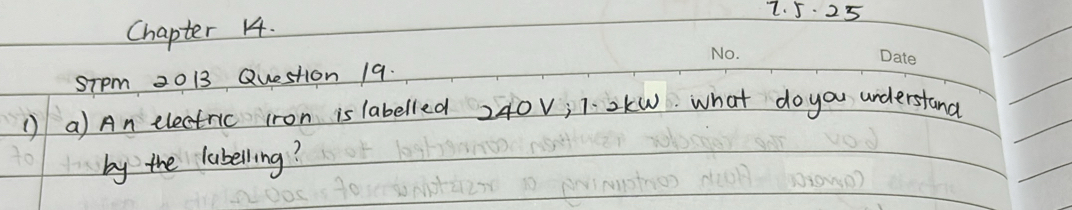 7.5.25
Chapter 14.
No. Date
STPM 2013 Question 19.
1) a) An electric iron is labelled 240V; 1.2kW. what do you understand
by the labelling?